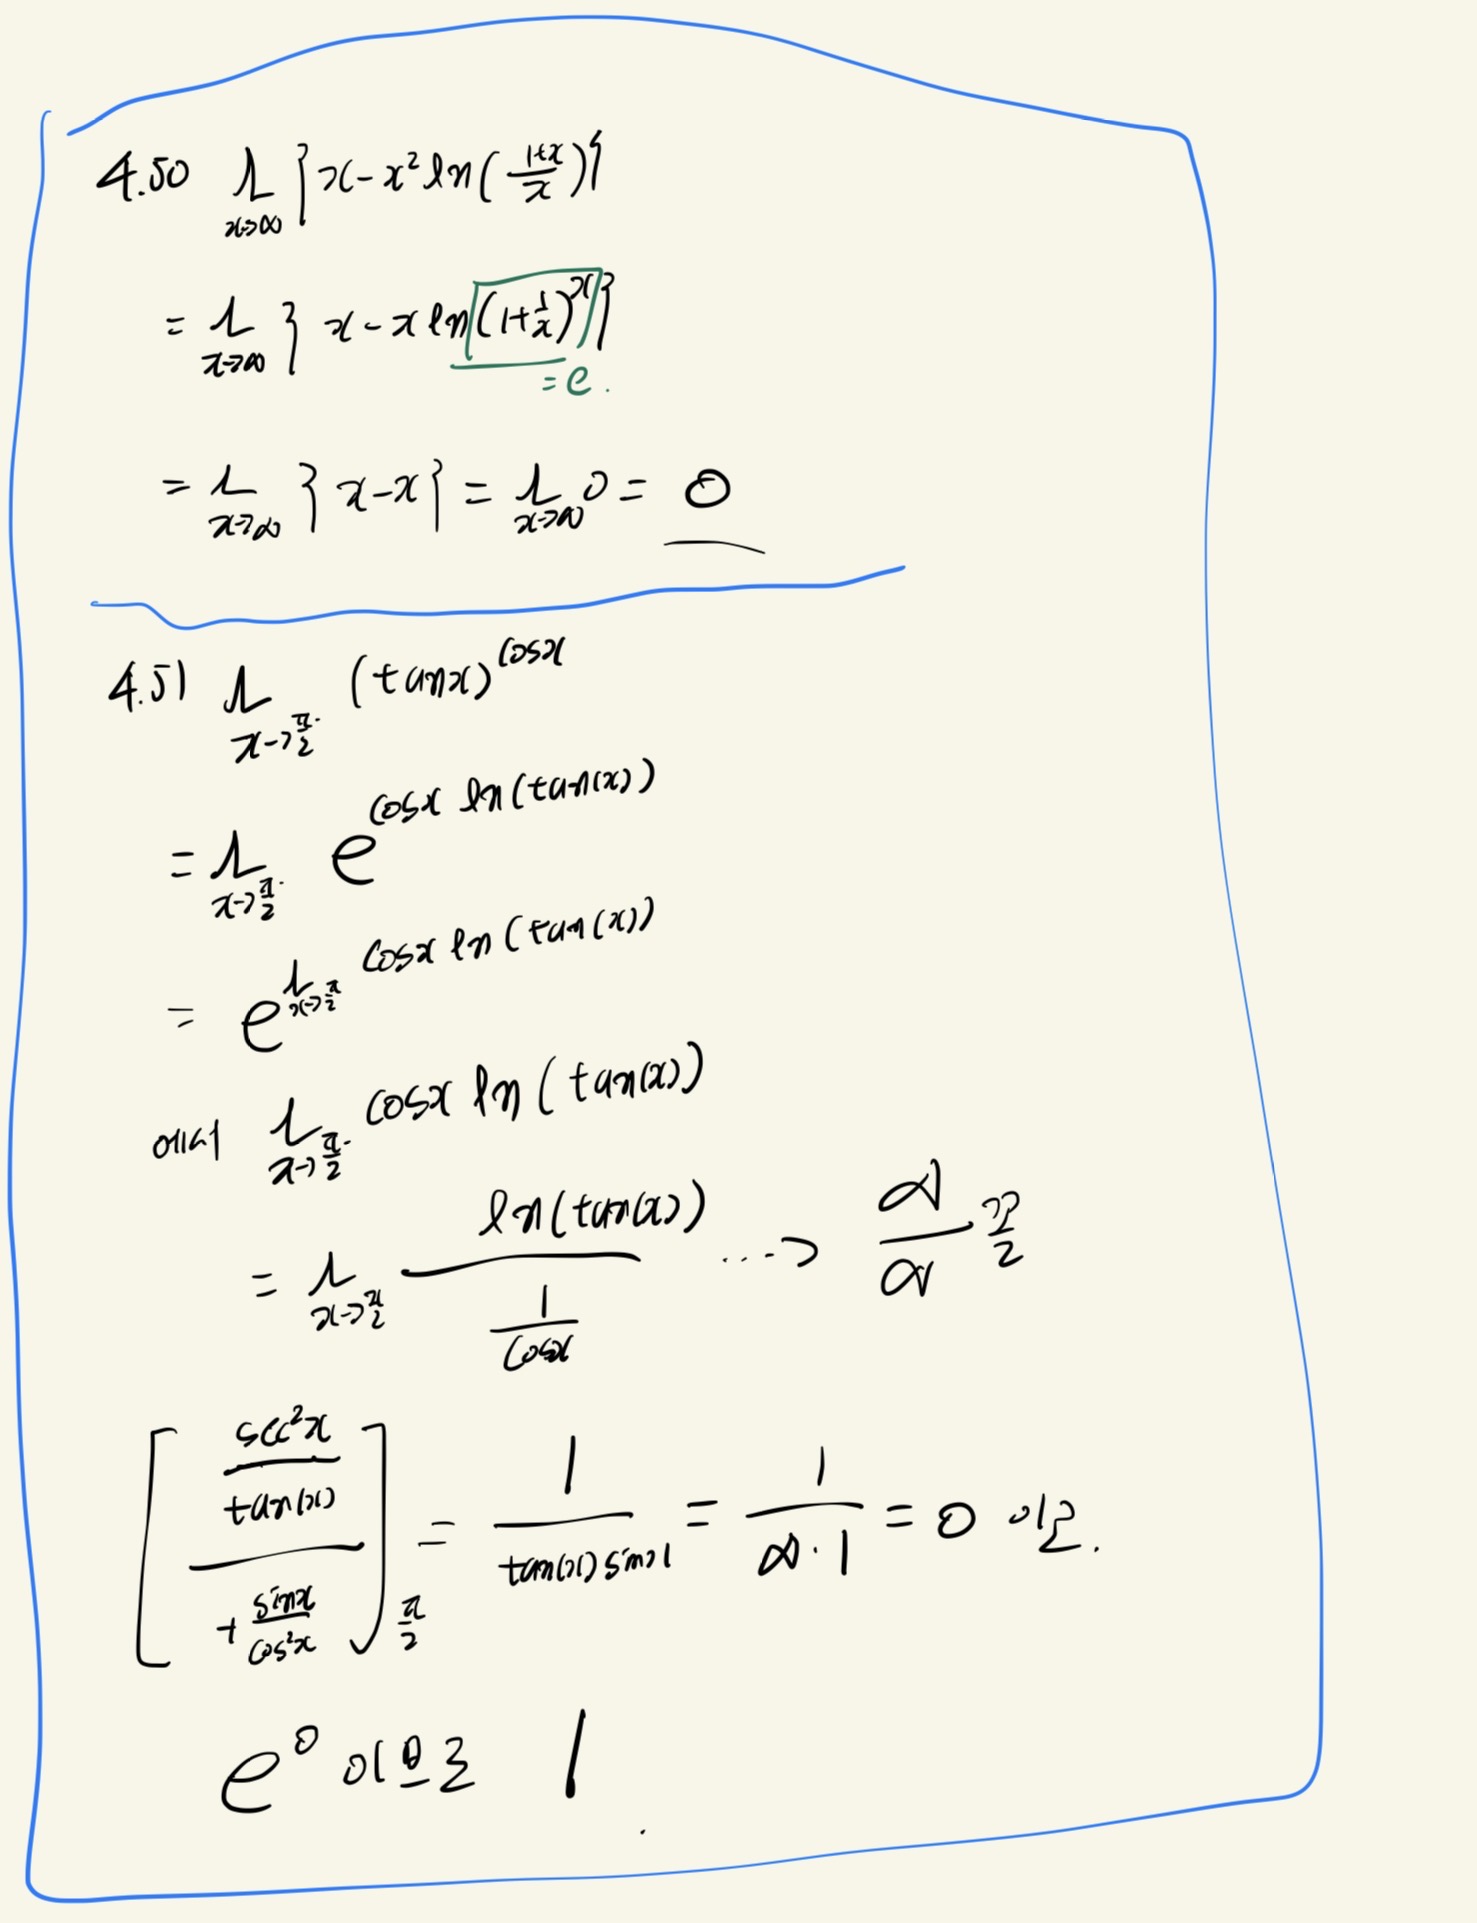 4.50 lim_{x→∞} {x - x² ln((1+x)/x)}
= lim_{x→∞} {x - x ln((1+1/x)^x)}
= e.
= lim_{x→∞} {x - x} = lim_{x→∞} 0 = 0
4.51 lim_{x→π/2} (tanx)^{cosx}
= lim_{x→π/2} e^{cosx ln(tan(x))}
= e^{lim_{x→π/2} cosx ln(tan(x))}
에서 lim_{x→π/2} cosx ln(tan(x))
= lim_{x→π/2} ln(tan(x)) / (1/cosx) ...→ ∞/∞ 꼴
[(sec²x/tan(x)) / (+ sinx/cos²x)]_{π/2} = 1/(tan(x) sinx) = 1/(∞·1) = 0 이므로.
e^0 이므로 1.